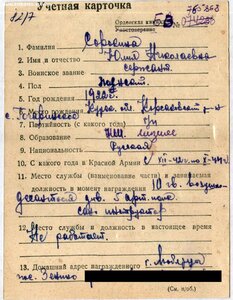 12/7
Учетная карточка
Орденская книжка
Удостоверение
1. Фамилия Сорокина
2. Имя и отчество Юлия Николаевна
3. Воинское звание сержант
4. Пол женская
5. Год рождения 1922г.
6. Место рождения
7. Партийность (с какого года) б/п
8. Образование
9. Национальность Русская
10. С какого года в Красной Армии с VII-42г. по X-
11. Место службы (наименование части) и занимаемая
должность в момент награждения 10 гв. воздушно
десантная див. 5 арт. полк
сан. инструктор
12. Место службы и должность в настоящее время
Не работает.
13. Домашний адрес награжденного г. Люберцы
пос.
(См. н/об.)